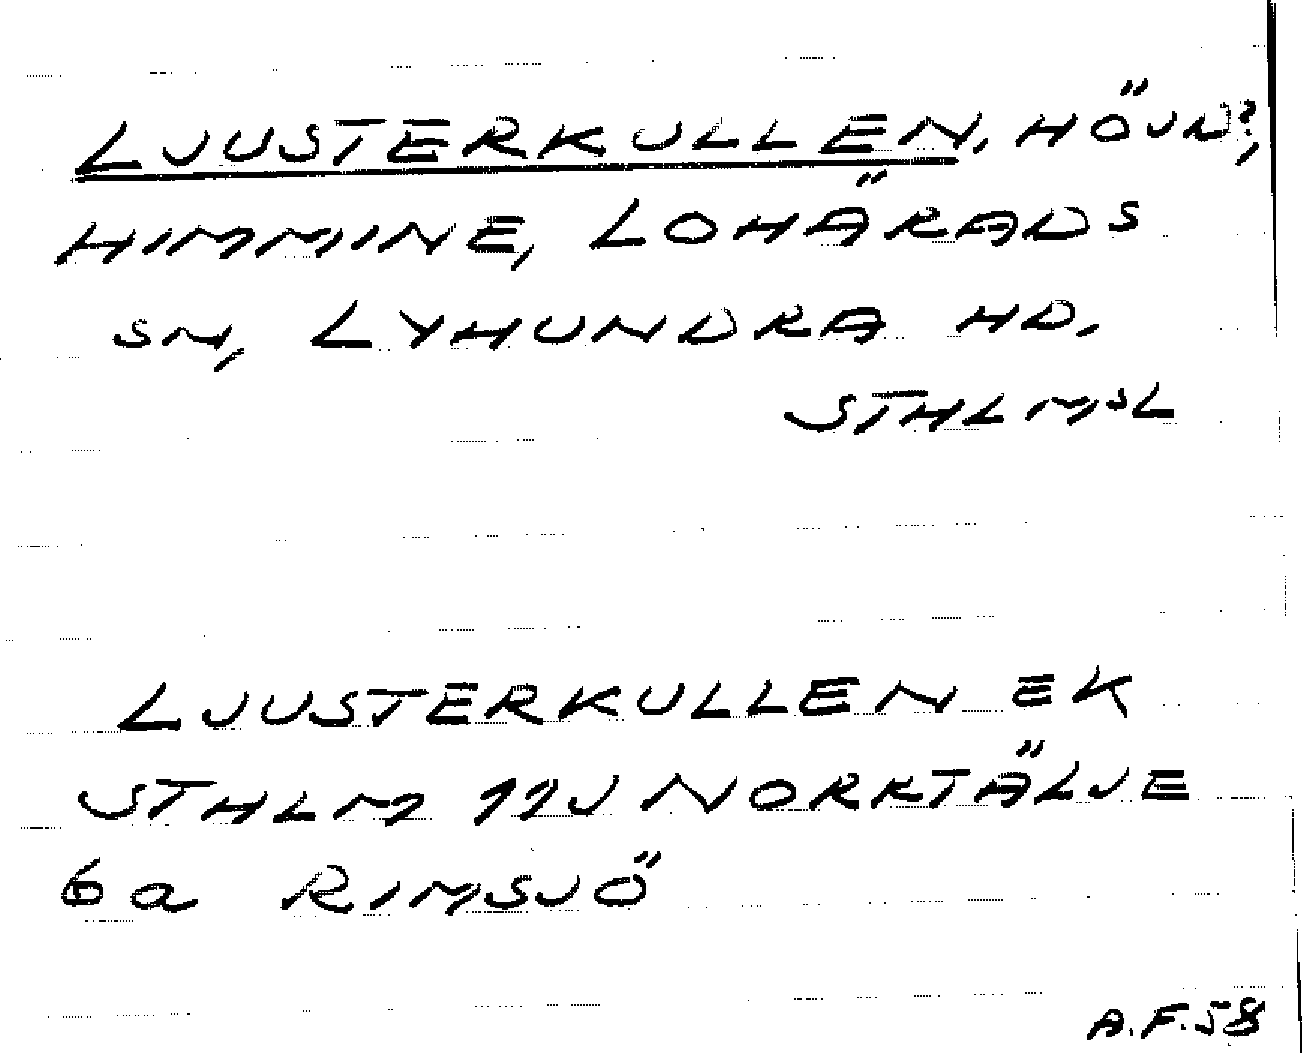 LJUSTERKULLEN, HÖJD?,
HIMMINE, LOHÄRADS
SN, LYHUNDRA HD.
STHLMSL
LJUSTERKULLEN EK
STHLM 11J NORRTÄLJE
6a RIMSJÖ
A.F.58